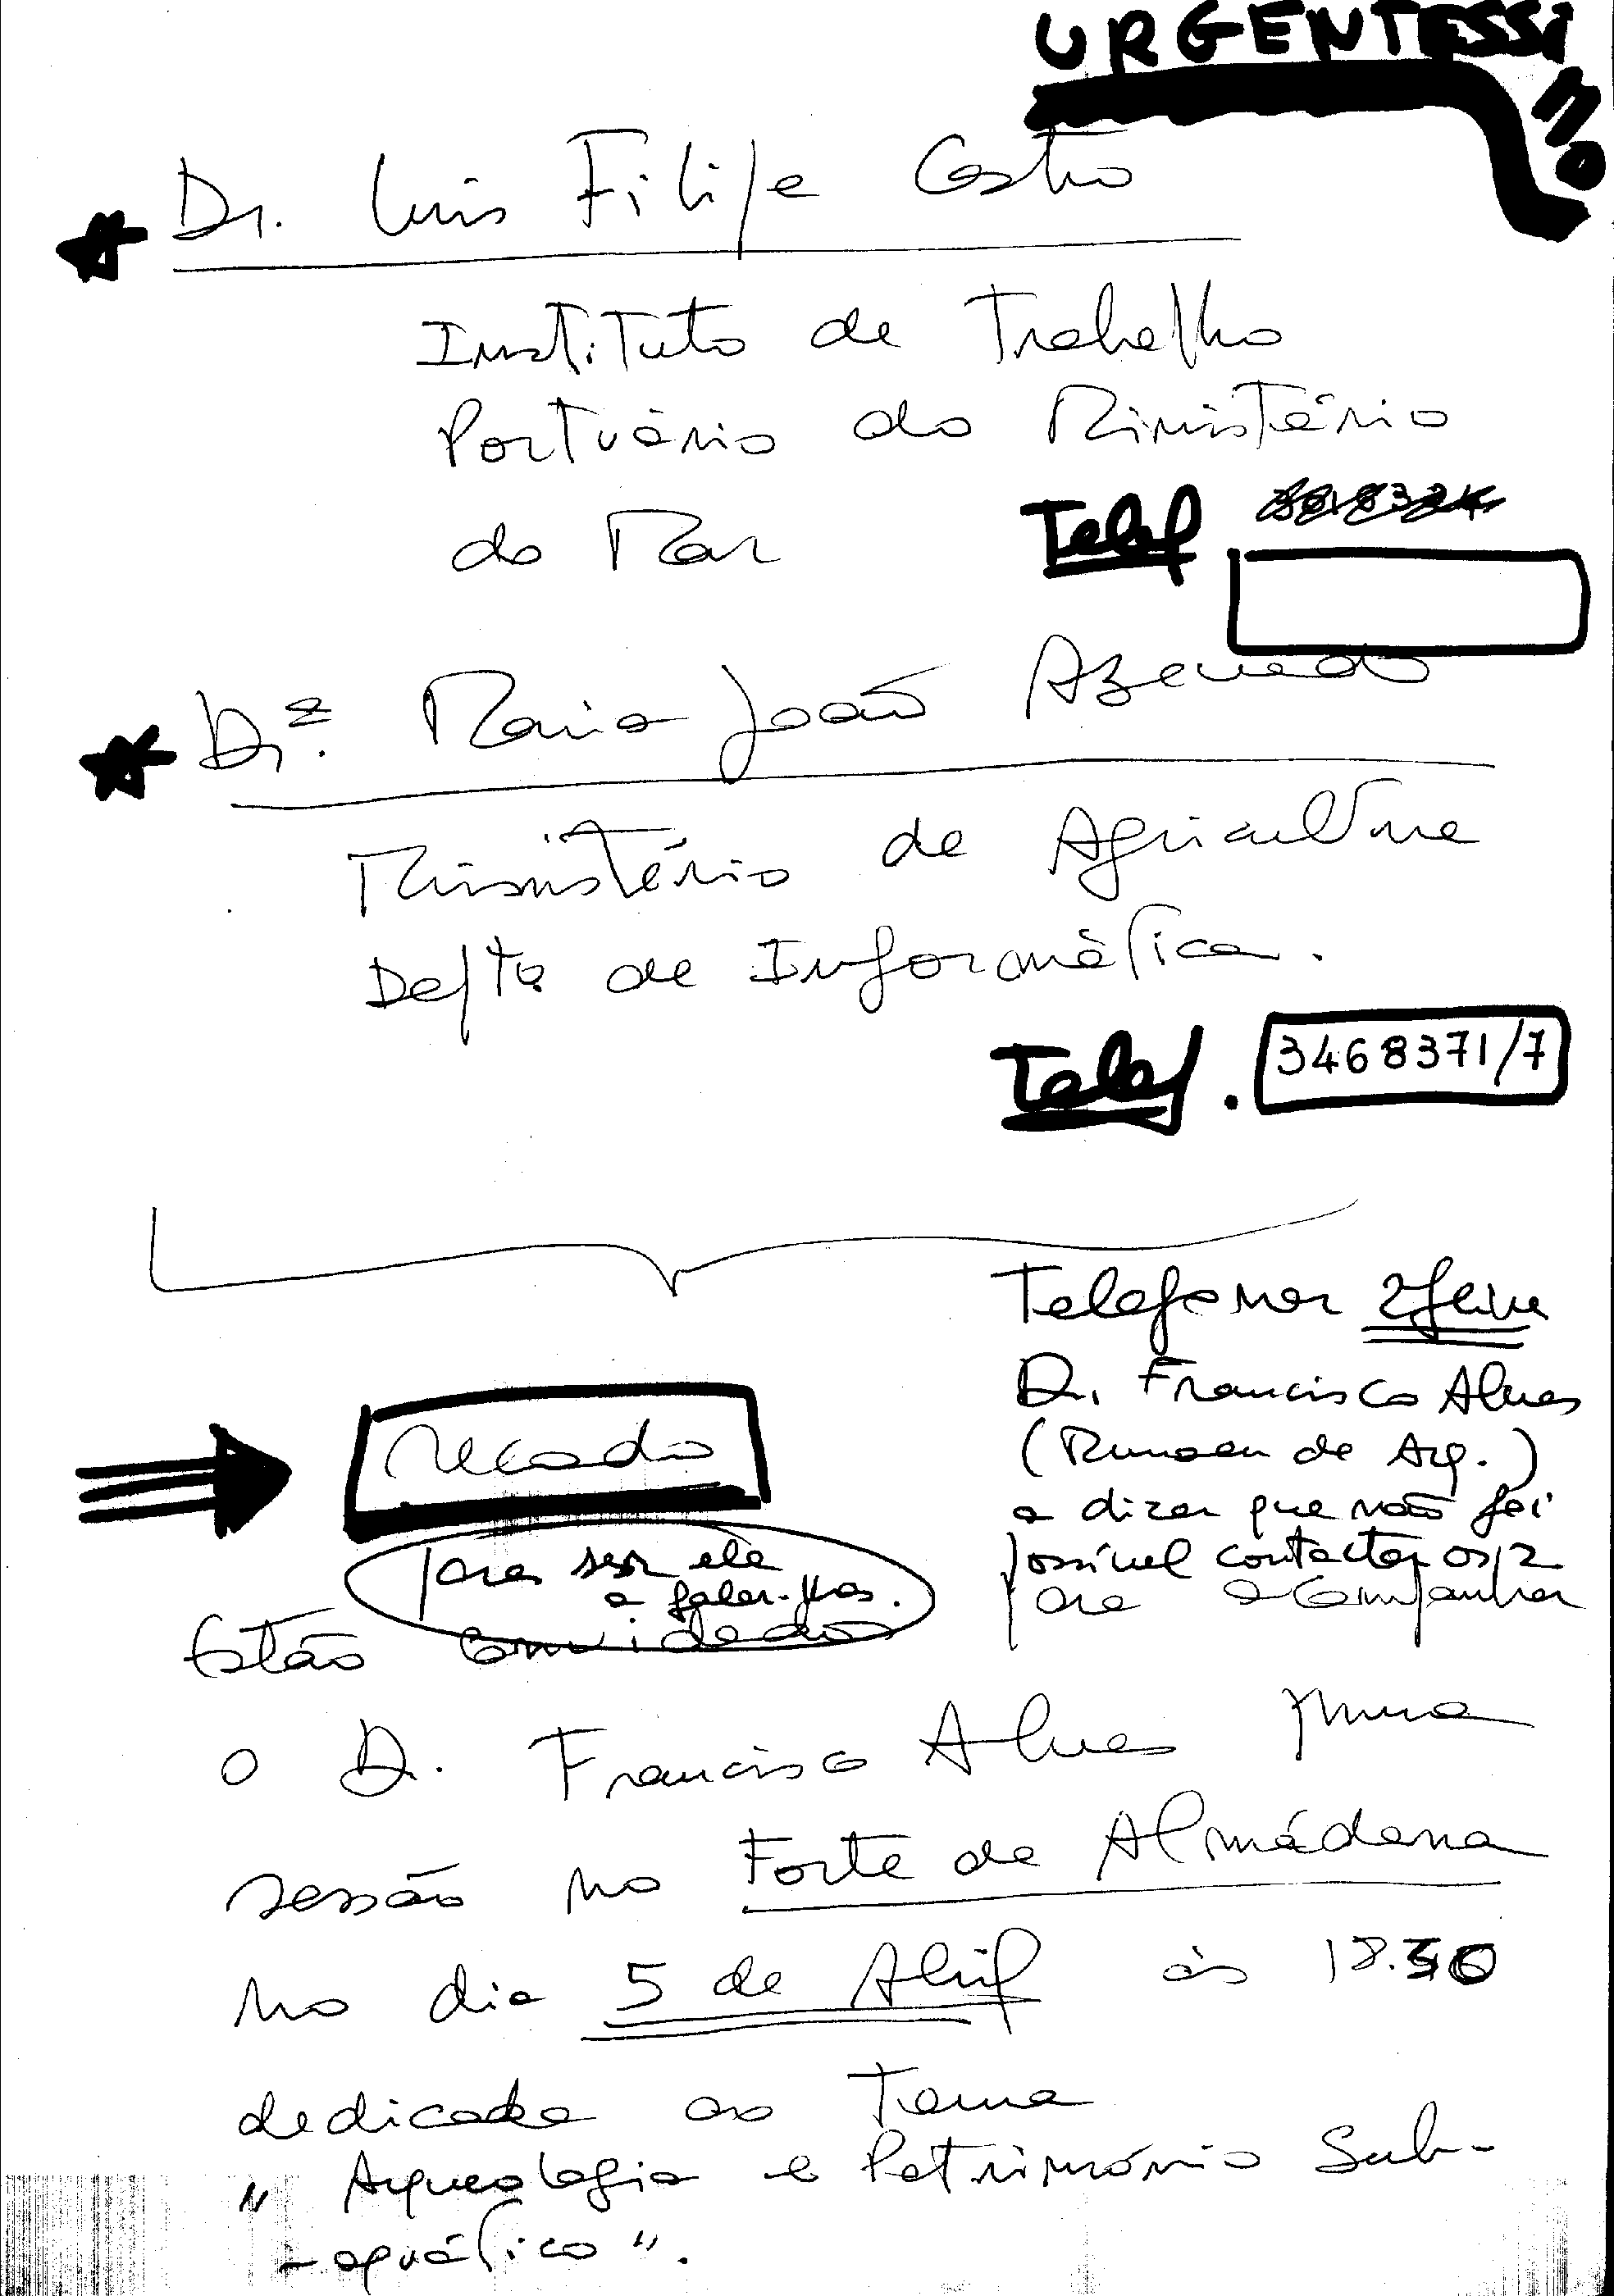 URGENTESSIMO
Dr. Luis Filipe Castro
Instituto de Trabalho
Portuário do Ministério
do Mar
Telef
Drª. Maria João Azevedo
Ministério de Agricultura
Depto de Informática.
Telef. 3468371/7
Telefonar 2ª feira
Dr. Francisco Alves
(Museu de Arq.)
a dizer que não foi
possível contactar os/2
para acompanhar
recado
para ser ele
a falar-lhes.
Estão convidados
o Dr. Francisco Alves numa
sessão no Forte de Almádena
no dia 5 de Abril às 18.30
dedicada ao Tema
"Arqueologia e Património Sub-
-aquático".